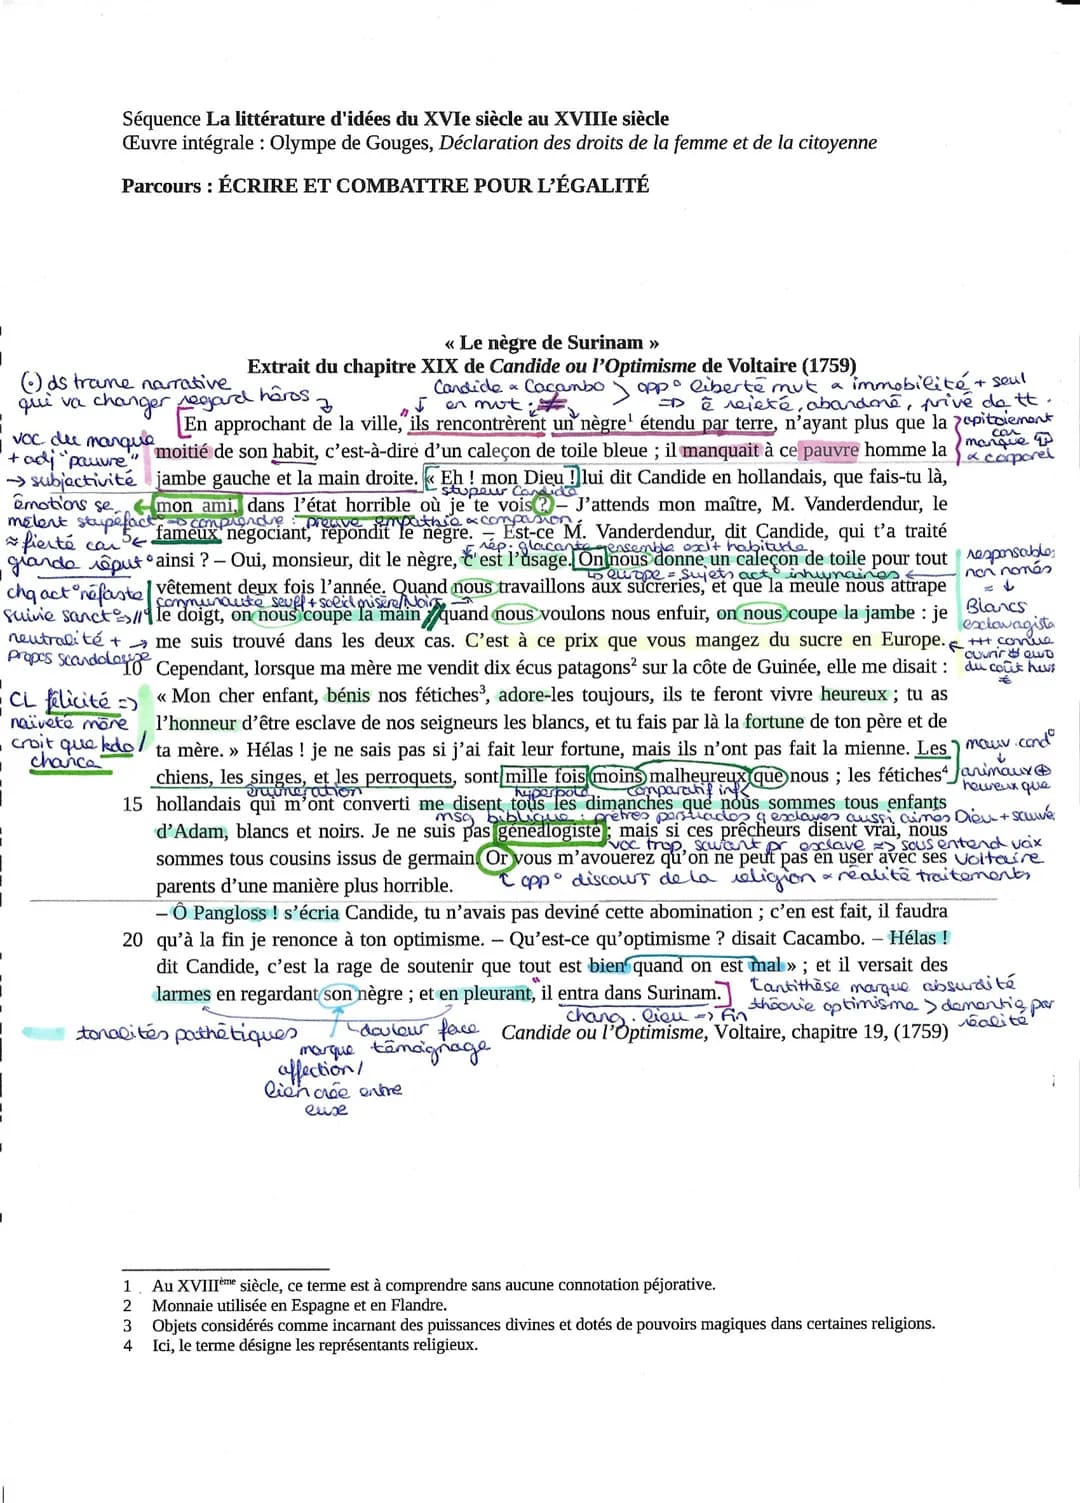 Séquence La littérature d'idées du XVIe siècle au XVIIIe siècle
Œuvre intégrale : Olympe de Gouges, Déclaration des droits de la femme et de la citoyenne
Parcours : ÉCRIRE ET COMBATTRE POUR L'ÉGALITÉ
« Le nègre de Surinam »
Extrait du chapitre XIX de Candide ou l'Optimisme de Voltaire (1759)
ds trame narrative
qui va changer regard héros
Candide & Cacambo
en mvt
opp° liberté mvt & immobilité + seul
rejeté, abandoné, privé de tt.
En approchant de la ville, ils rencontrèrent un nègre¹ étendu par terre, n'ayant plus que la
apitoiement
car
manque
& corporel
voc du manque
+ adj "pauvre"
→ subjectivité
moitié de son habit, c'est-à-dire d'un caleçon de toile bleue ; il manquait à ce pauvre homme la
jambe gauche et la main droite. « Eh ! mon Dieu ! lui dit Candide en hollandais, que fais-tu là,
stupeur Candide
émotions se
mêlent stupéfact°
mon ami, dans l'état horrible où je te vois ? – J'attends mon maître, M. Vanderdendur, le
comprendre : preuve empathie & compassion
≈ fierté car
grande réput°
5 fameux négociant, répondit le nègre. – Est-ce M. Vanderdendur, dit Candide, qui t'a traité
rép. glaçante
ainsi ? – Oui, monsieur, dit le nègre, c'est l'usage. On nous donne un caleçon de toile pour tout
europe = sujets act° inhumaines
responsables
non només
=
Blancs
esclavagiste
chq act° néfaste
suivie sanct°
vêtement deux fois l'année. Quand nous travaillons aux sucreries, et que la meule nous attrape
communauté
le doigt, on nous coupe la main ; quand nous voulons nous enfuir, on nous coupe la jambe : je
neutralité +
propos scandaleux
me suis trouvé dans les deux cas. C'est à ce prix que vous mangez du sucre en Europe.
ouvrir
du coût
10 Cependant, lorsque ma mère me vendit dix écus patagons² sur la côte de Guinée, elle me disait :
CL félicité =>
naïveté mère
croit que kdo/
chance
« Mon cher enfant, bénis nos fétiches³, adore-les toujours, ils te feront vivre heureux ; tu as
l'honneur d'être esclave de nos seigneurs les blancs, et tu fais par là la fortune de ton père et de
ta mère. » Hélas ! je ne sais pas si j'ai fait leur fortune, mais ils n'ont pas fait la mienne. Les
mauv. cond°
animaux ⊕
heureux que
chiens, les singes, et les perroquets, sont mille fois moins malheureux que nous ; les fétiches⁴
énumération
hyperbole
comparatif inf
15 hollandais qui m'ont converti me disent tous les dimanches que nous sommes tous enfants
msg biblique : prêtres persuadés q esclaves aussi aimés Dieu + sauvé
d'Adam, blancs et noirs. Je ne suis pas généalogiste ; mais si ces prêcheurs disent vrai, nous
voc trop savant pr esclave => sous entend voix
Voltaire
sommes tous cousins issus de germain. Or vous m'avouerez qu'on ne peut pas en user avec ses
parents d'une manière plus horrible.
opp° discours de la religion & réalité traitements
– Ô Pangloss ! s'écria Candide, tu n'avais pas deviné cette abomination ; c'en est fait, il faudra
20 qu'à la fin je renonce à ton optimisme. – Qu'est-ce qu'optimisme ? disait Cacambo. – Hélas !
dit Candide, c'est la rage de soutenir que tout est bien quand on est mal » ; et il versait des
larmes en regardant son nègre ; et en pleurant, il entra dans Surinam.
antithèse marque absurdité
théorie optimisme > démentie par
réalité
chang. lieu => fin
tonalités pathétiques
douleur face
témoignage
marque
affection/
lien crée entre
eux
Candide ou l'Optimisme, Voltaire, chapitre 19, (1759)
1 Au XVIIIème siècle, ce terme est à comprendre sans aucune connotation péjorative.
2 Monnaie utilisée en Espagne et en Flandre.
3 Objets considérés comme incarnant des puissances divines et dotés de pouvoirs magiques dans certaines religions.
4 Ici, le terme désigne les représentants religieux.